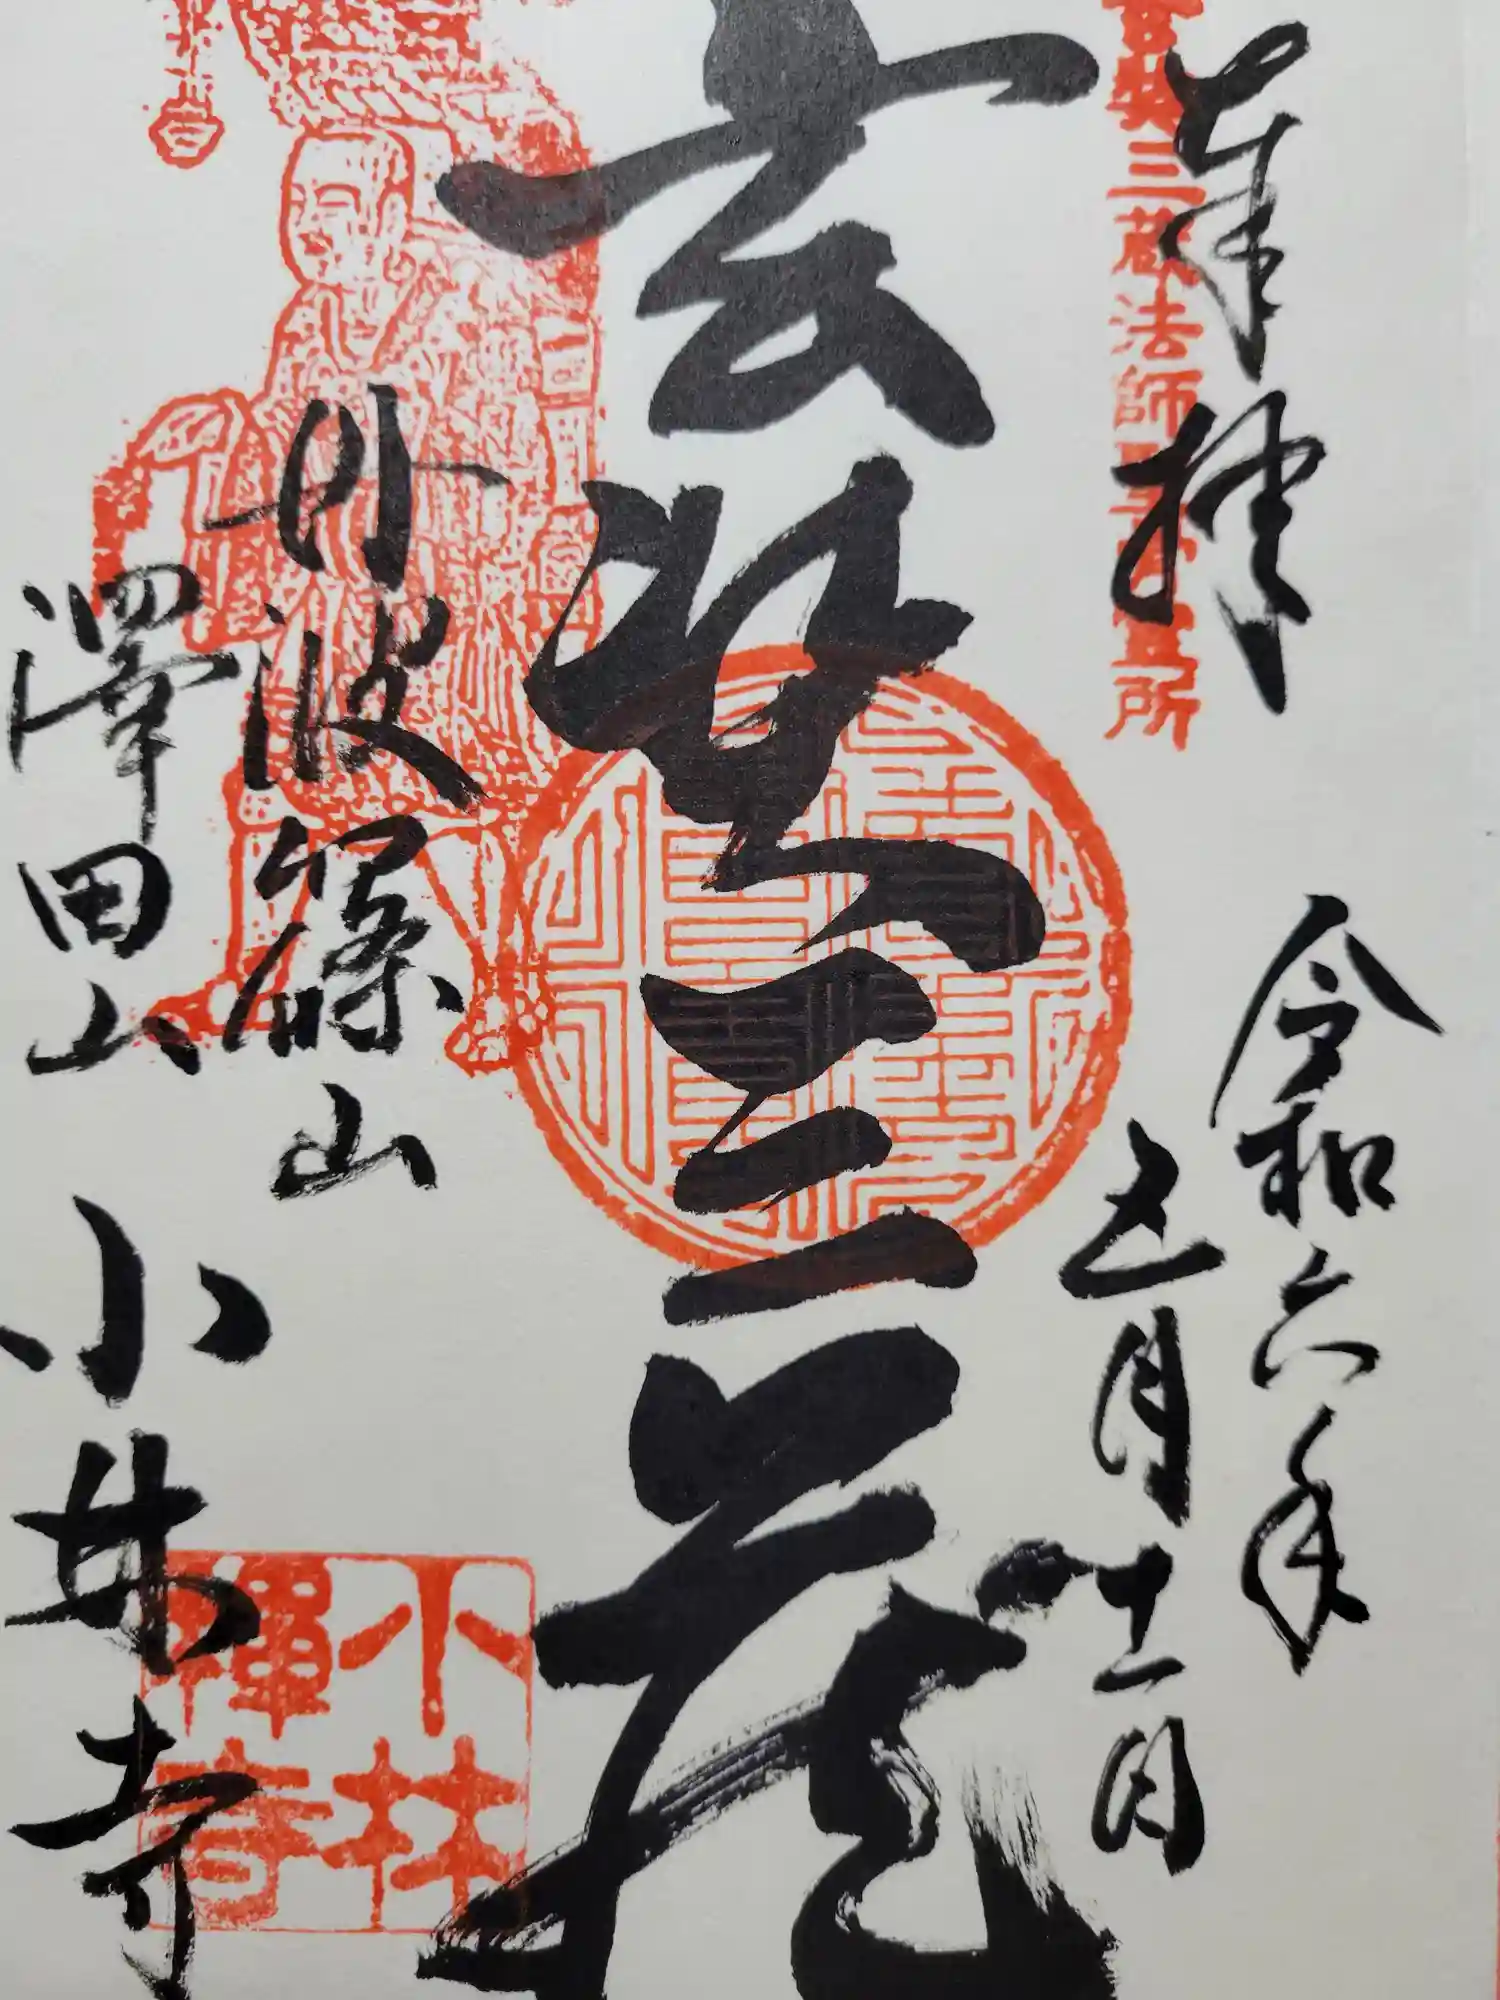 奉拝
三蔵法師
所
令和六年
五月十二日
玄奘三蔵
丹波篠山
澤田山
小林寺
小林
禪寺